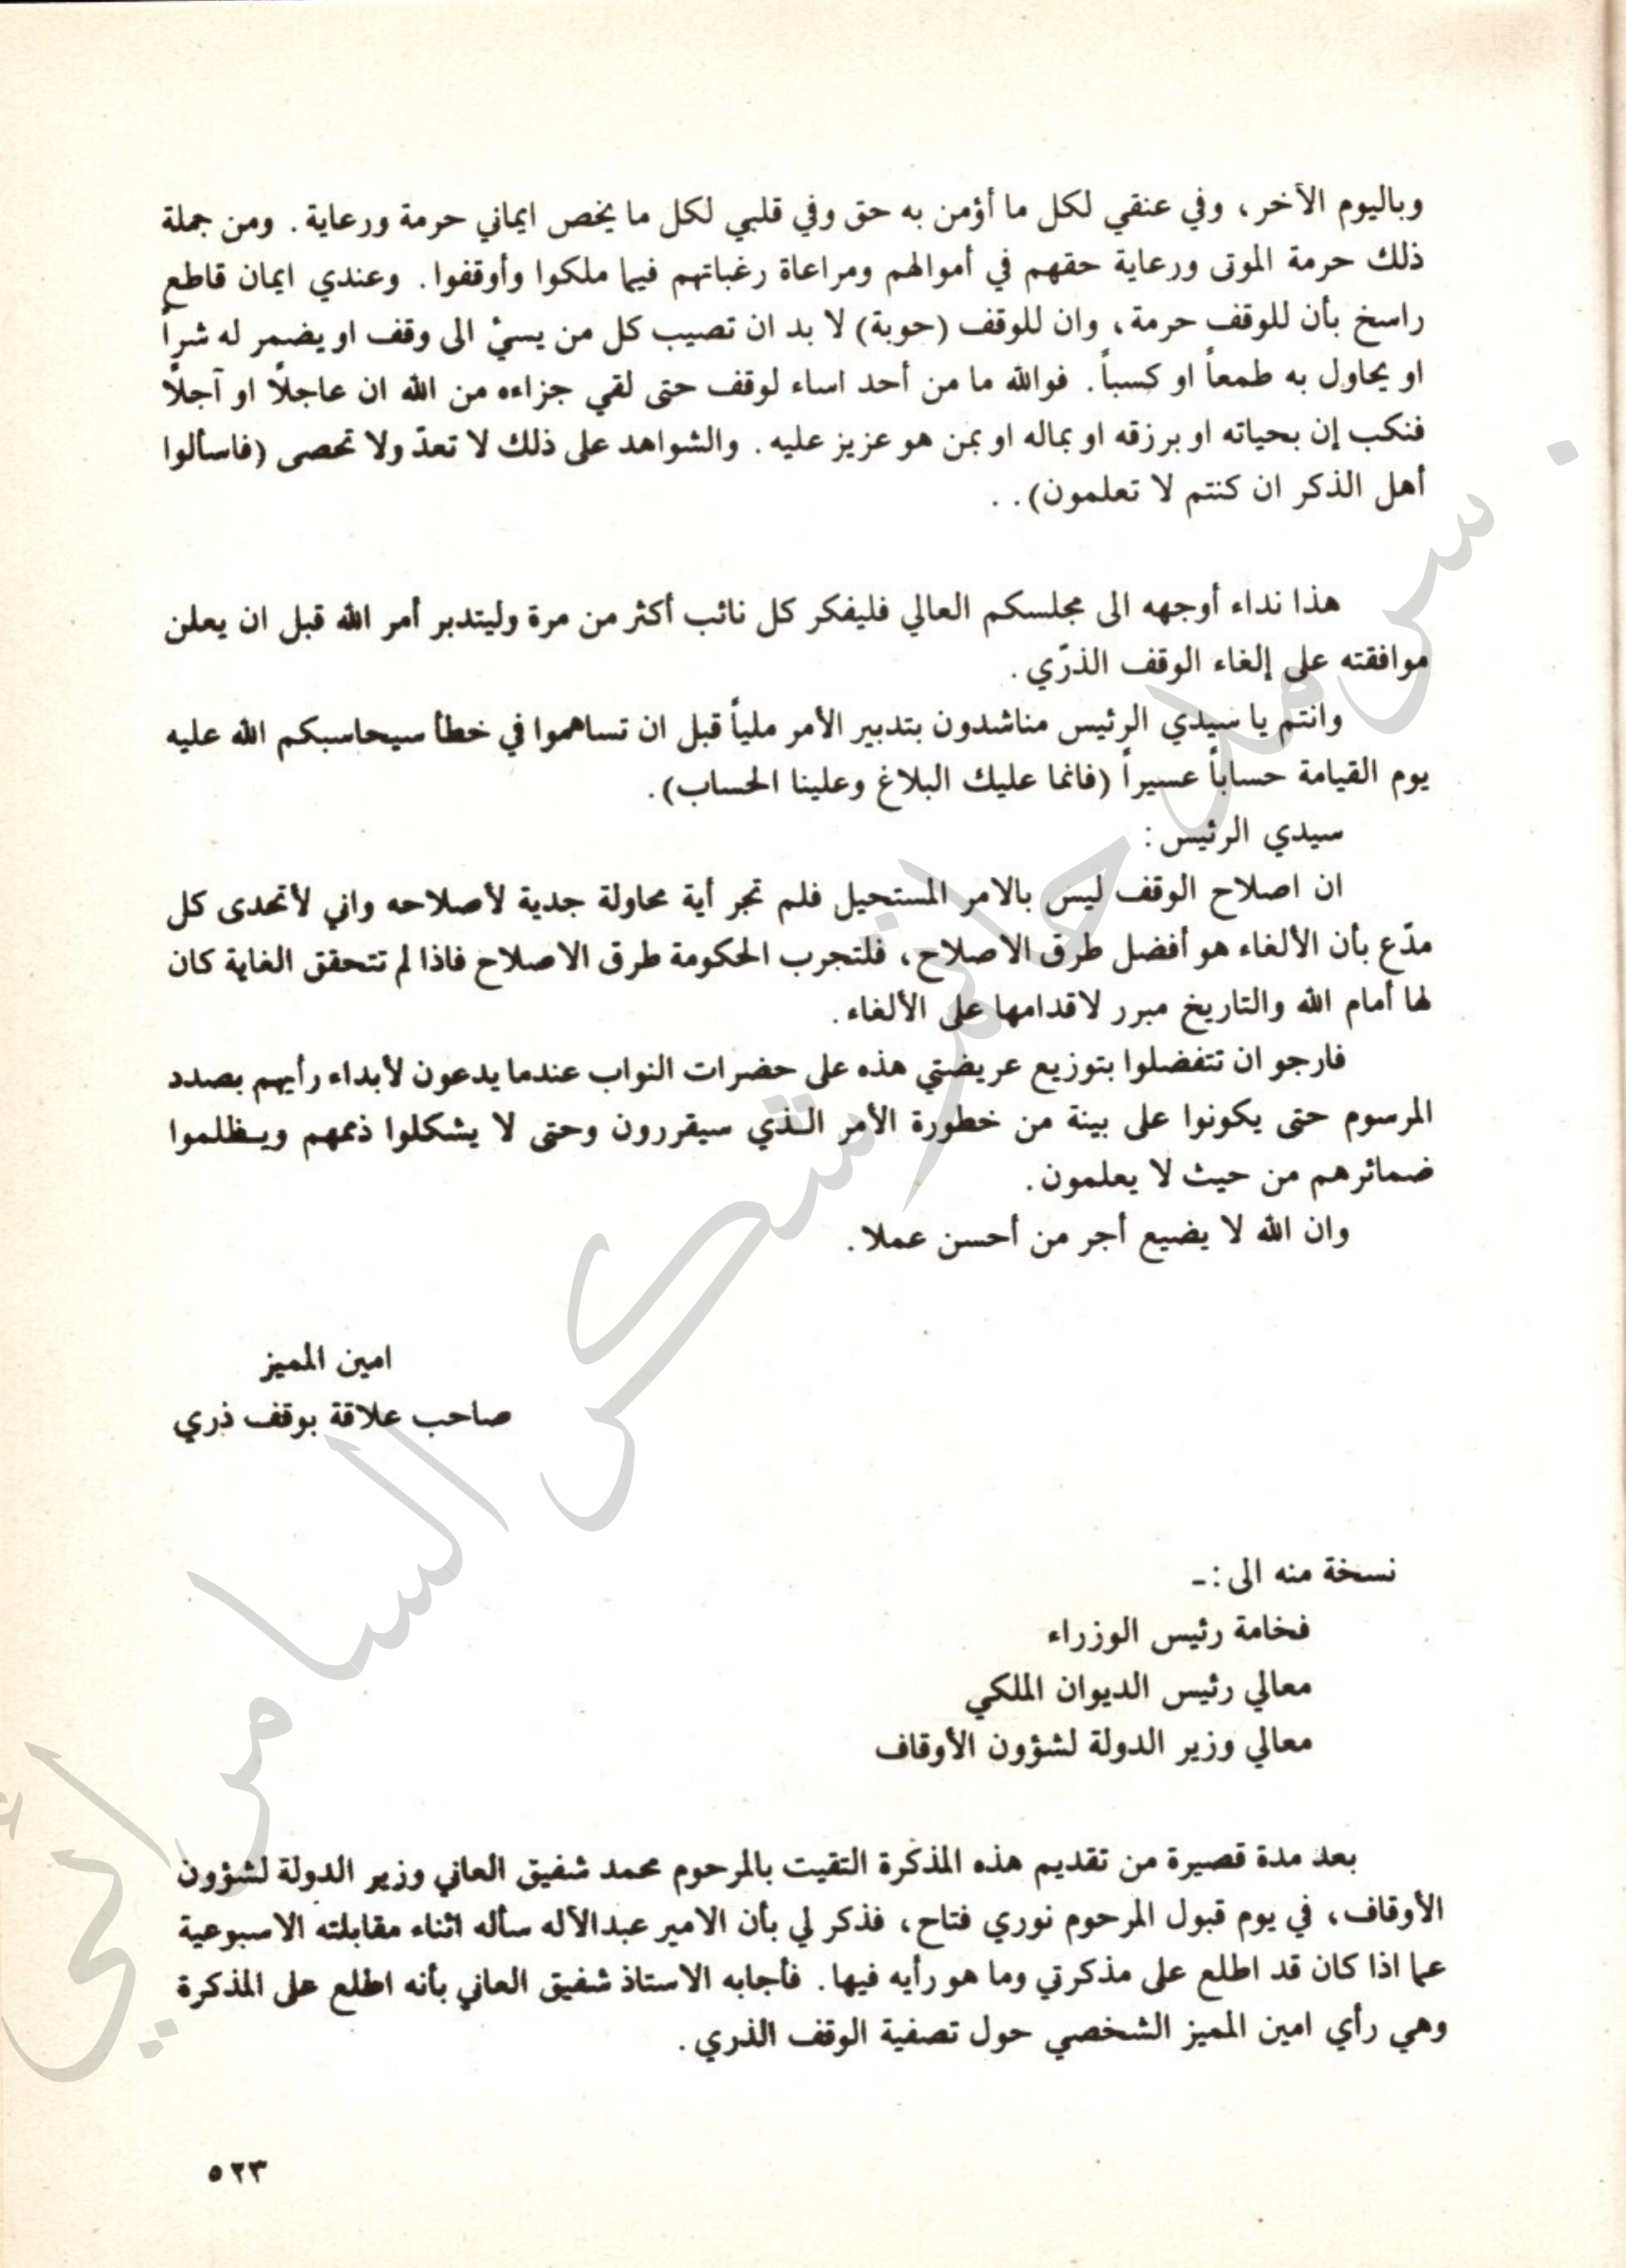 وباليوم الأخر، وفي عنقي لكل ما أؤمن به حق وفي قلبي لكل ما يخص ايماني حرمة ورعاية. ومن جملة
ذلك حرمة الموتى ورعاية حقهم في أموالهم ومراعاة رغباتهم فيما ملكوا وأوقفوا. وعندي ايمان قاطع
راسخ بأن للوقف حرمة، وان للوقف (حوبة) لا بد ان تصيب كل من يسيْ الى وقف او يضمر له شراً
او يحاول به طمعاً او كسباً. فوالله ما من أحد اساء لوقف حتى لقي جزاءه من الله ان عاجلًا او آجلًا
فنكب إن بحياته او برزقه او بماله او بمن هو عزيز عليه. والشواهد على ذلك لا تعدّ ولا تحصى (فاسألوا
أهل الذكر ان كنتم لا تعلمون). .
هذا نداء أوجهه الى مجلسكم العالي فليفكر كل نائب أكثر من مرة وليتدبر أمر الله قبل ان يعلن
موافقته على إلغاء الوقف الذرّي.
وانتم يا سيدي الرئيس مناشدون بتدبير الأمر ملياً قبل ان تساهموا في خطأ سيحاسبكم الله عليه
يوم القيامة حساباً عسيراً (فانما عليك البلاغ وعلينا الحساب).
سيدي الرئيس:
ان اصلاح الوقف ليس بالامر المستحيل فلم تجر أية محاولة جدية لأصلاحه واني لأتحدى كل
مدّع بأن الألغاء هو أفضل طرق الاصلاح، فلتجرب الحكومة طرق الاصلاح فاذا لم تتحقق الغاية كان
لها أمام الله والتاريخ مبرر لاقدامها على الألغاء.
فارجو ان تتفضلوا بتوزيع عريضتي هذه على حضرات النواب عندما يدعون لأبداء رأيهم بصدد
المرسوم حتى يكونوا على بينة من خطورة الأمر الـذي سيقررون وحتى لا يشكلوا ذممهم ويـظلموا
ضمائرهم من حيث لا يعلمون.
وان الله لا يضيع أجر من أحسن عملا.
امين المميز
صاحب علاقة بوقف ذري
نسخة منه الى:ـ
فخامة رئيس الوزراء
معالي رئيس الديوان الملكي
معالي وزير الدولة لشؤون الأوقاف
بعد مدة قصيرة من تقديم هذه المذكرة التقيت بالمرحوم محمد شفيق العاني وزير الدولة لشؤون
الأوقاف، في يوم قبول المرحوم نوري فتاح، فذكر لي بأن الامير عبدالآله سأله اثناء مقابلته الاسبوعية
عما اذا كان قد اطلع على مذكرتي وما هو رأيه فيها. فأجابه الاستاذ شفيق العاني بأنه اطلع على المذكرة
وهي رأي امين المميز الشخصي حول تصفية الوقف الذري.
٥٢٣
سرمد حاتم شكر السامرائي